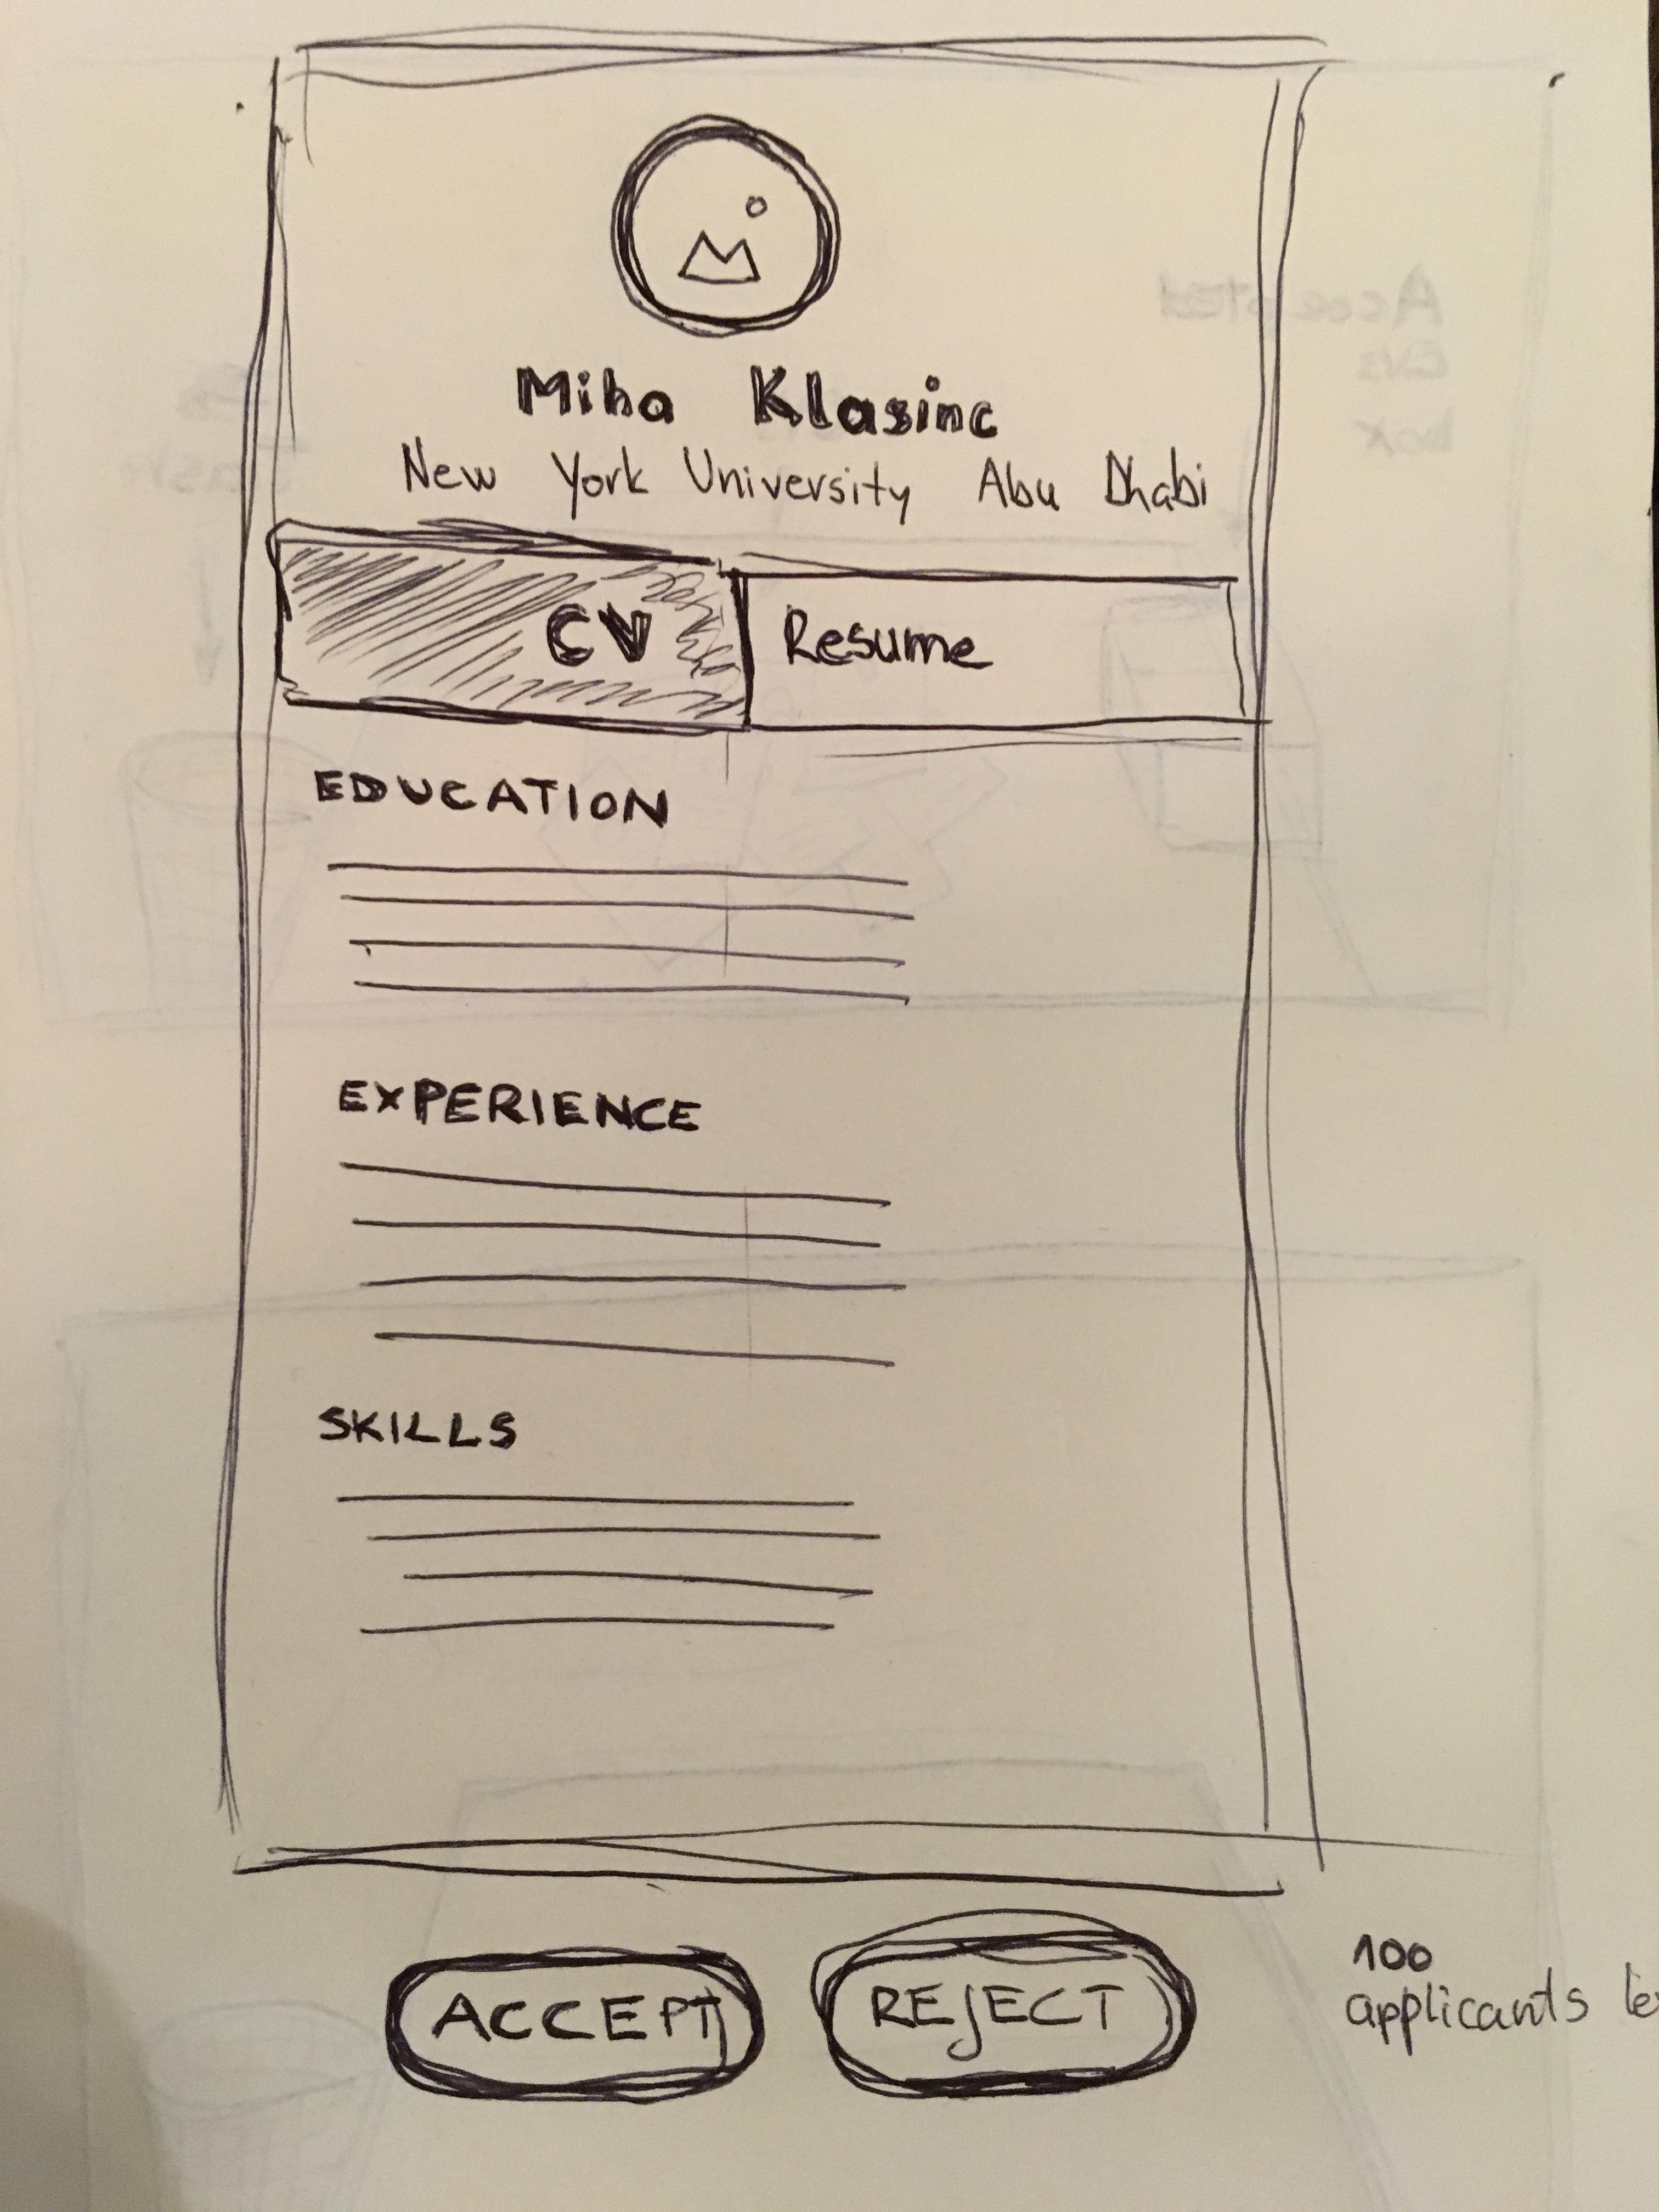 Miha Klasinc
New York University Abu Dhabi
CV Resume
EDUCATION
EXPERIENCE
SKILLS
ACCEPT REJECT
100
applicants